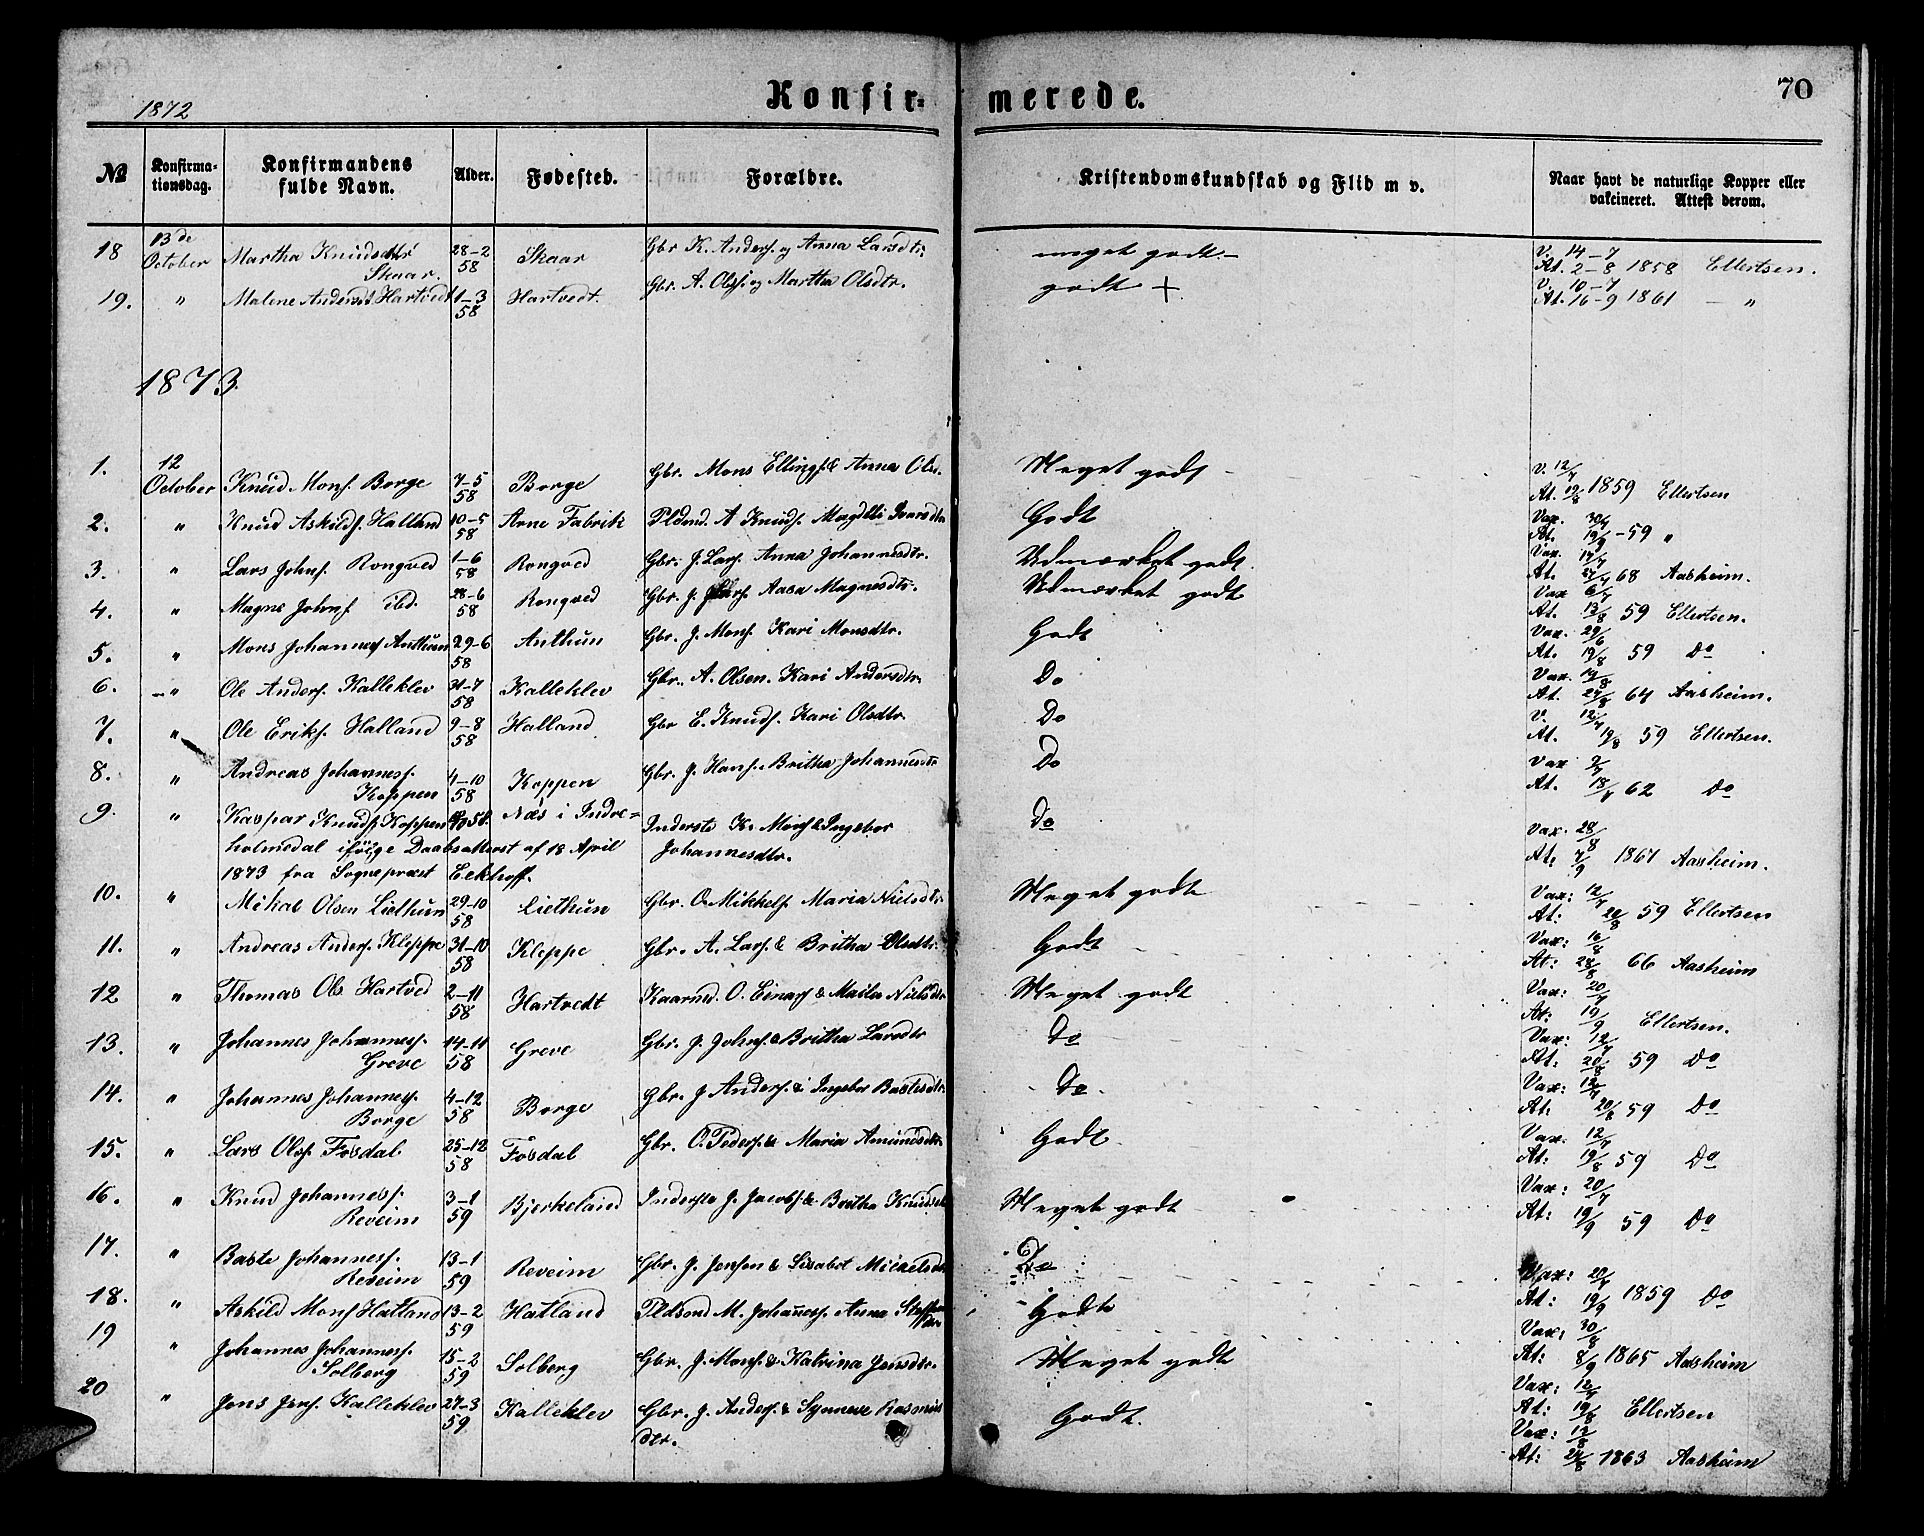 1872 Konfirmerede. 70
№ Konfirmationsdag. Konfirmandens fulde Navn. Alder. Fødested. Forældre. Kristendomskundskab og Flid m v. Naar havt de naturlige Kopper eller vakcineret. Attest derom.
18 13de October Martha Knudsdtr Skaar. 28-2 58 Skaar Gbr K. Anders. og Anna Larsdtr: meget godt.- V. 14-7 At. 2-8 1858 Ellertsen.
19. " Malene Andersdt Hartvedt 1-3 58 Hartvedt. Gbr. A. Ols. og Martha Olsdtr. godt + V. 10-7 At. 16-9 1861 - "
1873.
1. 12 October Knud Mons. Borge 7-5 58 Borge Gbr. Mons Ellings. & Anna Ols. Meget godt - V. 12/7 At. 19/8 1859 Ellertsen
2. " Knud Askilds. Halland 10-5 58 Arne Fabrik Pldsmd. A Knuds. Magdli Ivarsdtr Godt Vax. 30/7 At. 19/9 -59 "
3. " Lars Johns. Rongved 1-6 58 Rongved Gbr. J. Lars. Anna Johannesdtr. Udmærket godt. Vax. 17/7 At. 27/7 68 Aasheim.
4. " Magne Johns ibd. 28-6 58 Rongved Gbr. J. Aasa Magnesdtr. Udmærket godt Vax 6/7 At. 13/8 59 Ellertsen.
5. " Mons Johannes Anthun 29-6 58 Anthun Gbr. J. Mons. Kari Monsdtr. Godt Vax. 29/6 At. 19/8 59 Do
6. " Ole Anders. Kalleklev 31-7 58 Kalleklev Gbr. A. Olsen. Kari Andersdtr. Do Vax. 19/8 At. 27/8 64 Aasheim.
7. " Ole Eriks. Halland 9-8 58 Halland Gbr E. Knuds. Kari Olsdtr. Do V. 12/7 At. 19/8 59 Ellertsen.
8. " Andreas Johannes. Koppen 4-10 58 Koppen Gbr. J. Hans. Britha Johannesdtr Do Vax 2/7 At. 18/8 62 Do
9. " Kaspar Knuds. Koppen 58. Næs i Indre= Inderste K. Mons & Ingebor Do Vax. 28/8
holmedal ifølge Daabsattest af 18 April Johannesdtr. At. 7/9 1867 Aasheim.
1873 fra Sognepræst Eckhoff.
10. " Mikal Olsen Liethun 29-10 58 Liethun Gbr. O. Mikkels. Maria Nielsdtr Meget godt Vax: 12/7 At: 20/8 59 Ellertsen
11. " Andreas Anders. Kleppe 31-10 58 Kleppe Gbr. A. Lars. & Britha Olsdtr. Godt Vax: 16/8 At: 28/8 66 Aasheim
12 " Thomas Ols Hartved 2-11 58 Hartvedt Kaarmd. O. Einars & Nielsdtr Meget godt Vax: 20/7 At: 19/9 Ellertsen.
13. " Johannes Johannes. Greve 14-11 58 Greve Gbr. J. Johns. & Britha Larsdtr Do Vax: 12/7 At: 20/8 59 Do
14. " Johannes Johannes. Borge 4-12 58 Borge Gbr. J Anders. & Ingebor Bastesdtr Do. Vax: 12/7 At: 20/8 59 Do
15. " Lars Ols. Fosdal 25-12 58 Fosdal Gbr. O. Peders. & Maria Amundsdtr. Godt. Vax: 12/7 At: 19/8 59 Do
16. " Knud Johannes. Reveim 3-1 59 Bjerkeland Inderste J. Jacobs. & Britha Knudsdtr Meget godt Vax: 20/7 At: 19/9 59 Do
17. " Baste Johannes. Reveim 13-1 59 Reveim Gbr. J. Jensen & Lisabet Mickelsdtr Do Vax: 20/7 At: 19/9 1859 Do
18. " Askild Mons Hatland 13-2 59 Hatland Pldsmd M. Johaness. Anna Steffensdtr Godt Vax: 30/8 At: 8/9 1865 Aasheim
19 " Johannes Johannes. Solberg 15-2 59 Solberg Gbr. J. Mons. & Katrina Jensdtr. Meget godt Vax: 12/7 At: 19/8 Ellertsen
20 " Jens Jens. Kalleklev 27-3 59 Kalleklev Gbr. J. Anders. & Synneve Rasmus dtr. Godt. Vax: 12/8 At: 24/8 1863 Aasheim